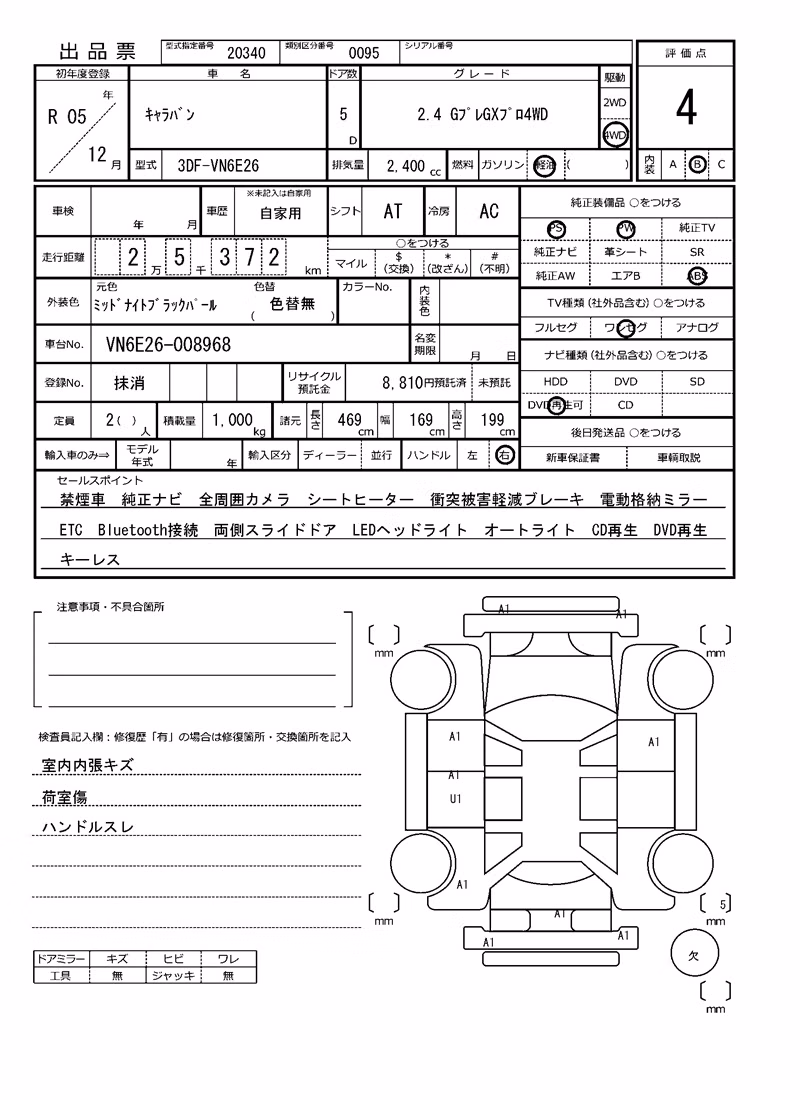 出品票 型式指定番号 20340 類別区分番号 0095 シリアル番号
評価点
4
内装 A B C
初年度登録 車名 ドア数 グレード 駆動
R 05 年 12 月 キャラバン 5 D 2.4 GプレGXプロ4WD 2WD
4WD
型式 3DF-VN6E26 排気量 2,400 cc 燃料 ガソリン 軽油 ( )
車検 年 月 車歴 ※未記入は自家用 自家用 シフト AT 冷房 AC
走行距離 2 万 5 千 3 7 2 km
○をつける
マイル $(交換) *(改ざん) #(不明)
外装色 元色 ミッドナイトブラックパール 色替 ( 色替無 ) カラーNo. 内装色
車台No. VN6E26-008968 名変期限 月 日
登録No. 抹消 リサイクル預託金 8,810円預託済 未預託
定員 2( ) 人 積載量 1,000 kg 諸元 長さ 469 cm 幅 169 cm 高さ 199 cm
輸入車のみ⇒ モデル年式 年 輸入区分 ディーラー 並行 ハンドル 左 右
純正装備品 ○をつける
PS PW 純正TV
純正ナビ 革シート SR
純正AW エアB ABS
TV種類(社外品含む)○をつける
フルセグ ワンセグ アナログ
ナビ種類(社外品含む)○をつける
HDD DVD SD
DVD再生可 CD
後日発送品 ○をつける
新車保証書 車輌取説
セールスポイント
禁煙車 純正ナビ 全周囲カメラ シートヒーター 衝突被害軽減ブレーキ 電動格納ミラー
ETC Bluetooth接続 両側スライドドア LEDヘッドライト オートライト CD再生 DVD再生
キーレス
注意事項・不具合箇所
検査員記入欄:修復歴「有」の場合は修復箇所・交換箇所を記入
室内内張キズ
荷室傷
ハンドルスレ
ドアミラー キズ ヒビ ワレ
工具 無 ジャッキ 無
A1
A1
[ ] mm
[ ] mm
A1
A1
A1
U1
A1
A1
A1
A1
[ ] mm
[ 5 ] mm
欠
[ ] mm